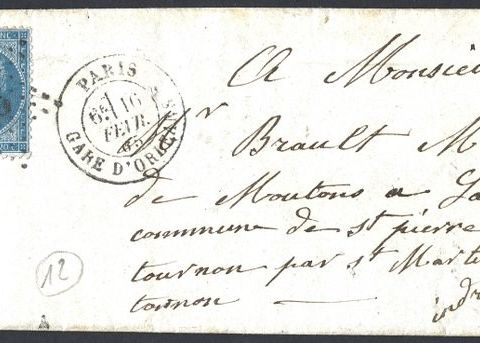 PARIS
6E 16
FEVR.
65
GARE D'ORLEANS
A Monsieu
Mr Brault M
de Moutons a La
commune de st pierre
tournon par st Marti
tournon — indr
12